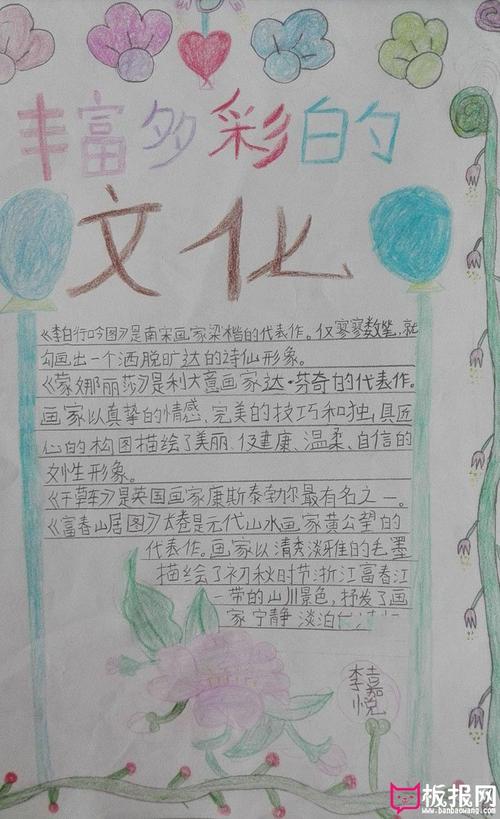 丰富多彩的
文化
《李白行吟图》是南宋画家梁楷的代表作。仅寥寥数笔,就
勾画出一个洒脱旷达的诗仙形象。
《蒙娜丽莎》是利大意画家达·芬奇的代表作。
画家以真挚的情感,完美的技巧和独具匠
心的构图描绘了美丽、健康、温柔、自信的
女性形象。
《干草车》是英国画家康斯泰勃尔最有名之一。
《富春山居图》卷是元代山水画家黄公望的
代表作。画家以清秀淡雅的毛墨
描绘了初秋时节浙江富春江
一带的山川景色,抒发了画
家宁静淡泊
李嘉悦
板报网
www.banbaowang.com